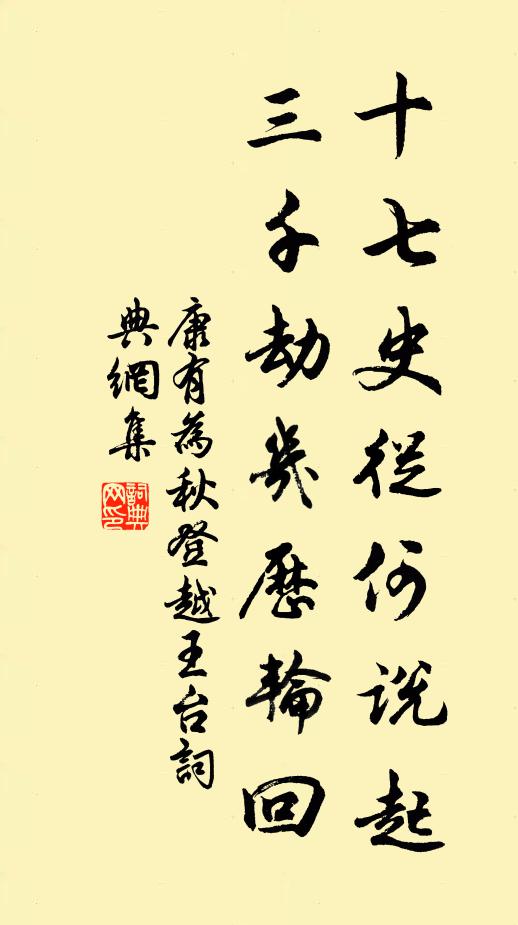 十七史從何說起
三千劫幾歷輪回
康有為秋登越王台詞
典網集
詞典網印